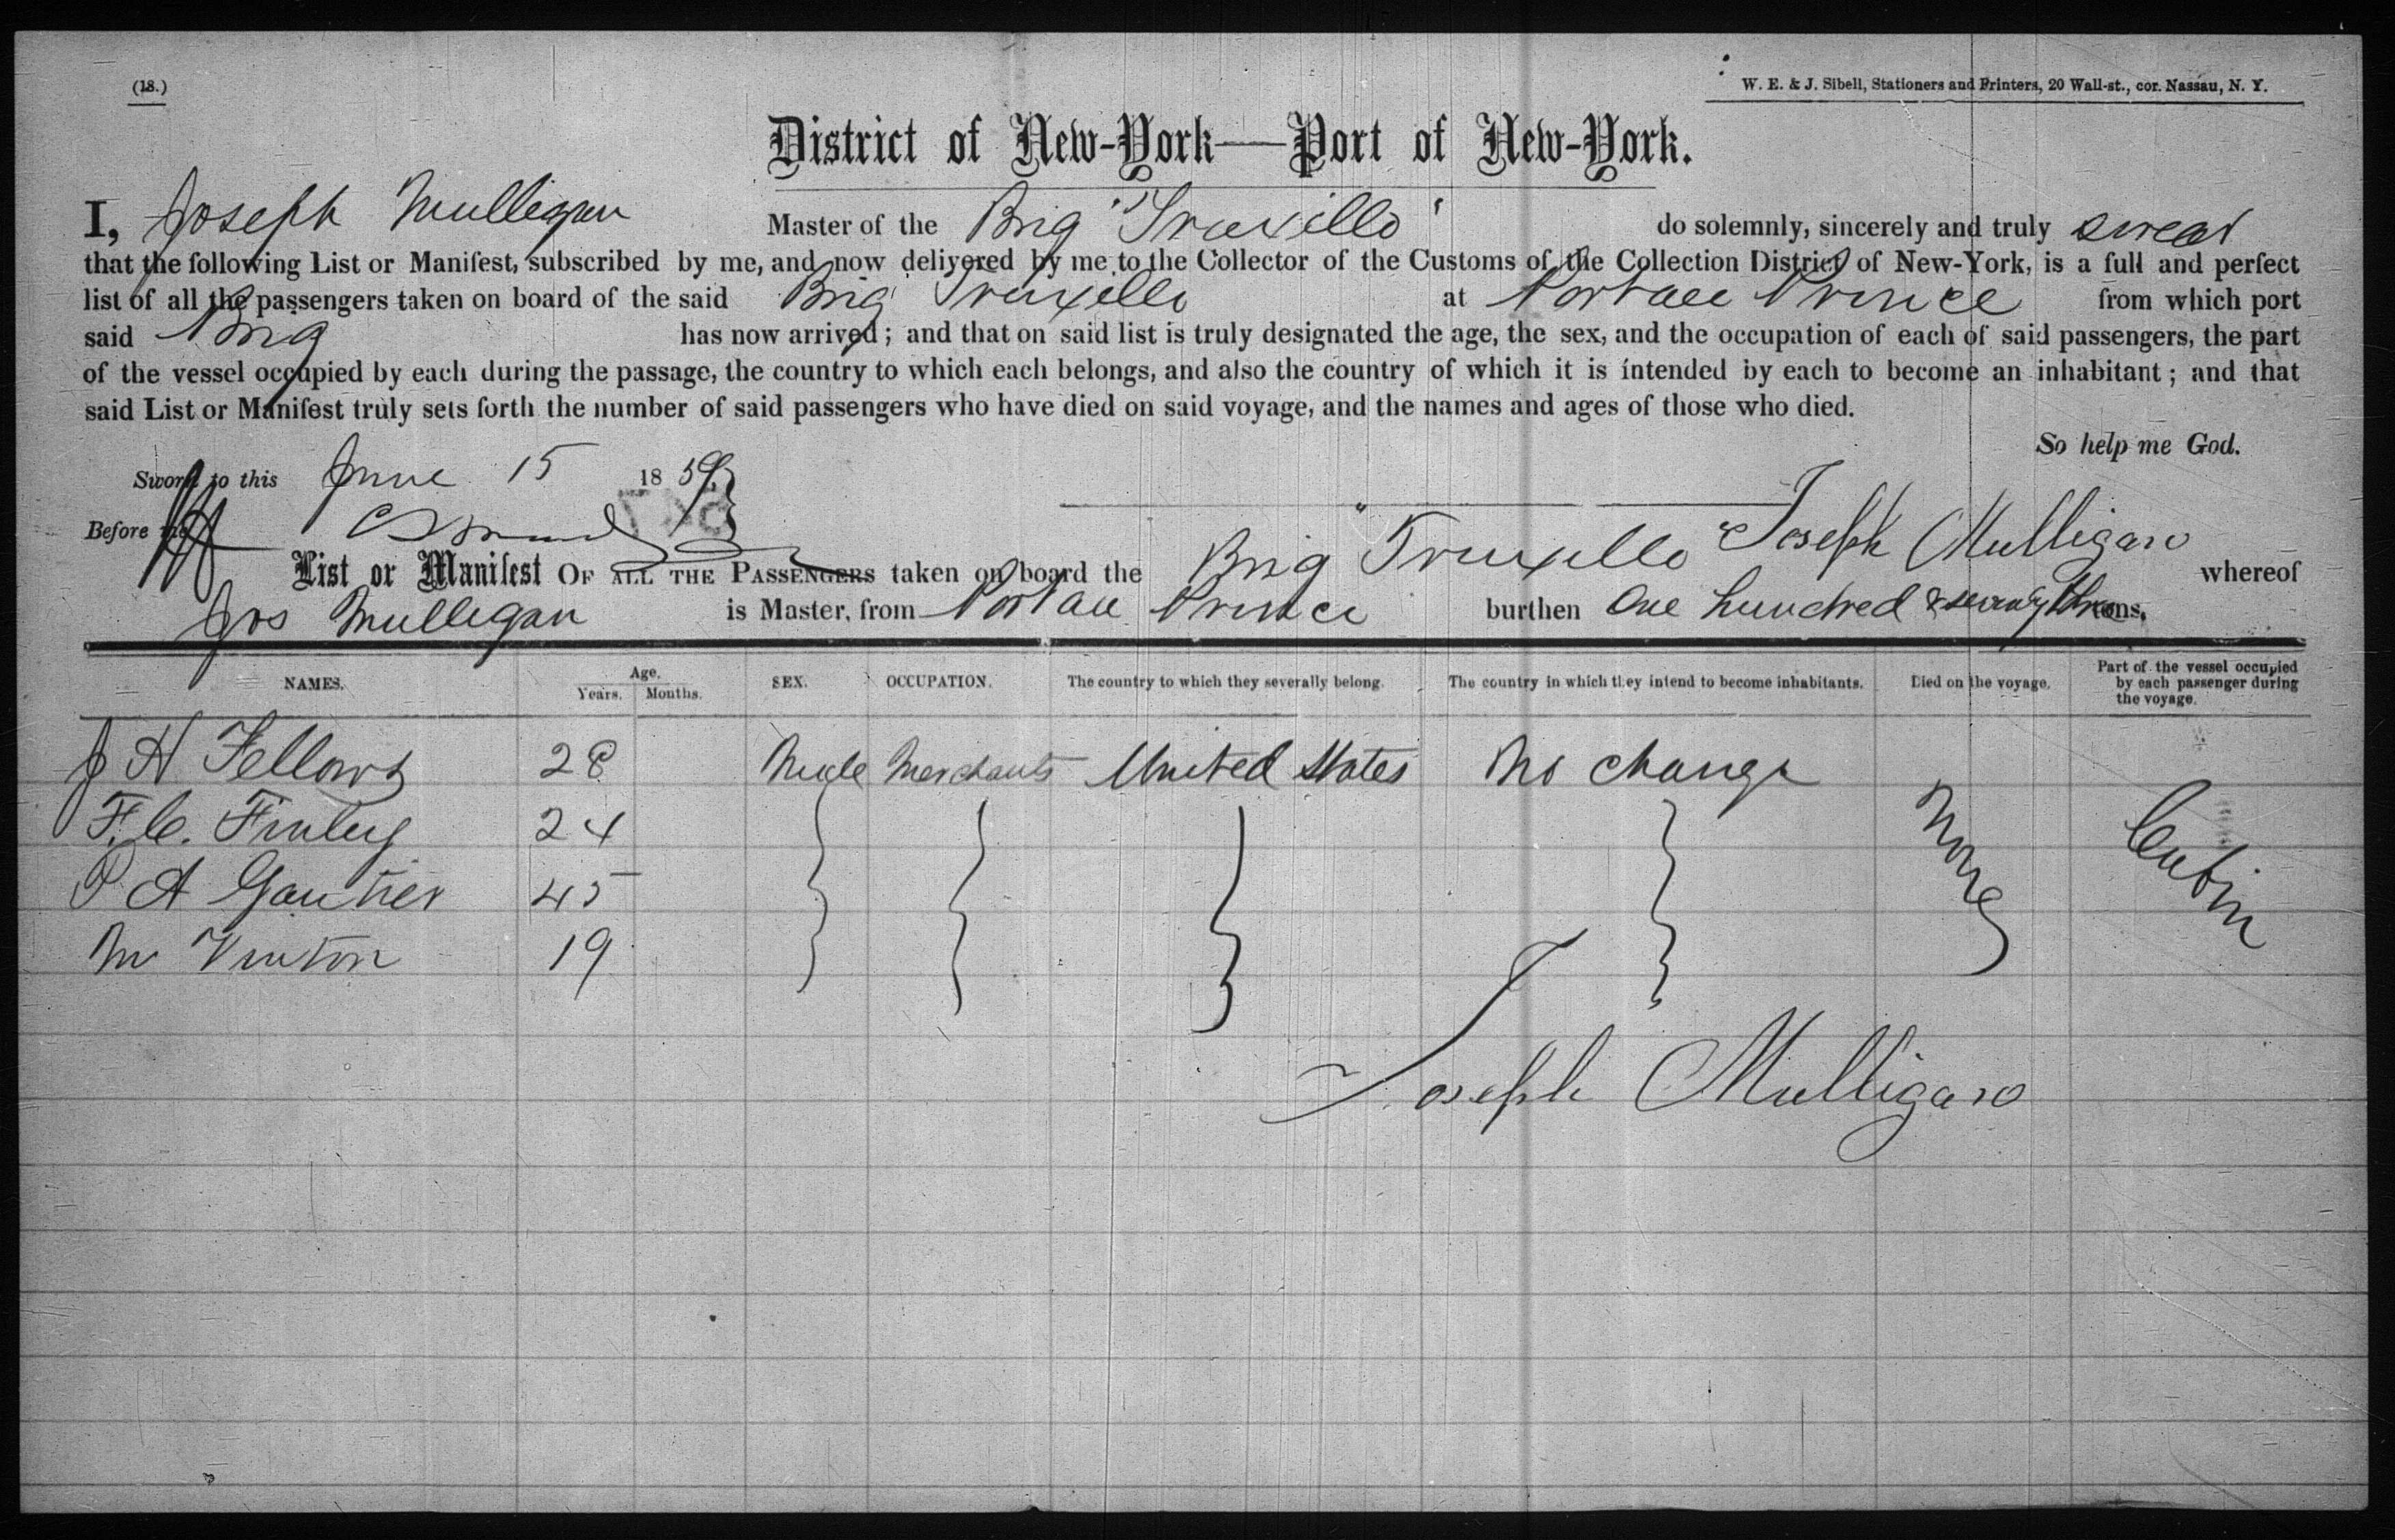 (18.)
W. E. & J. Sibell, Stationers and Printers, 20 Wall-st., cor. Nassau, N. Y.
District of New-York—Port of New-York.
I, Joseph Mulligan Master of the Brig "Truxillo" do solemnly, sincerely and truly swear
that the following List or Manifest, subscribed by me, and now delivered by me to the Collector of the Customs of the Collection District of New-York, is a full and perfect
list of all the passengers taken on board of the said Brig Truxillo at Portau Prince from which port
said Brig has now arrived; and that on said list is truly designated the age, the sex, and the occupation of each of said passengers, the part
of the vessel occupied by each during the passage, the country to which each belongs, and also the country of which it is intended by each to become an inhabitant; and that
said List or Manifest truly sets forth the number of said passengers who have died on said voyage, and the names and ages of those who died.
So help me God.
Sworn to this June 15 1859
Before me
Joseph Mulligan
List or Manifest OF ALL THE PASSENGERS taken on board the Brig "Truxillo" whereof
Jos Mulligan is Master, from Portau Prince burthen One hundred & seventy three tons.
NAMES. Age. Years. Months. SEX. OCCUPATION. The country to which they severally belong. The country in which they intend to become inhabitants. Died on the voyage. Part of the vessel occupied by each passenger during the voyage.
J H Fellows 28 Male Merchants United States No change
F. C. Finley 24 None Cabin
P A Gautier 45
M Vinton 19
Joseph Mulligan